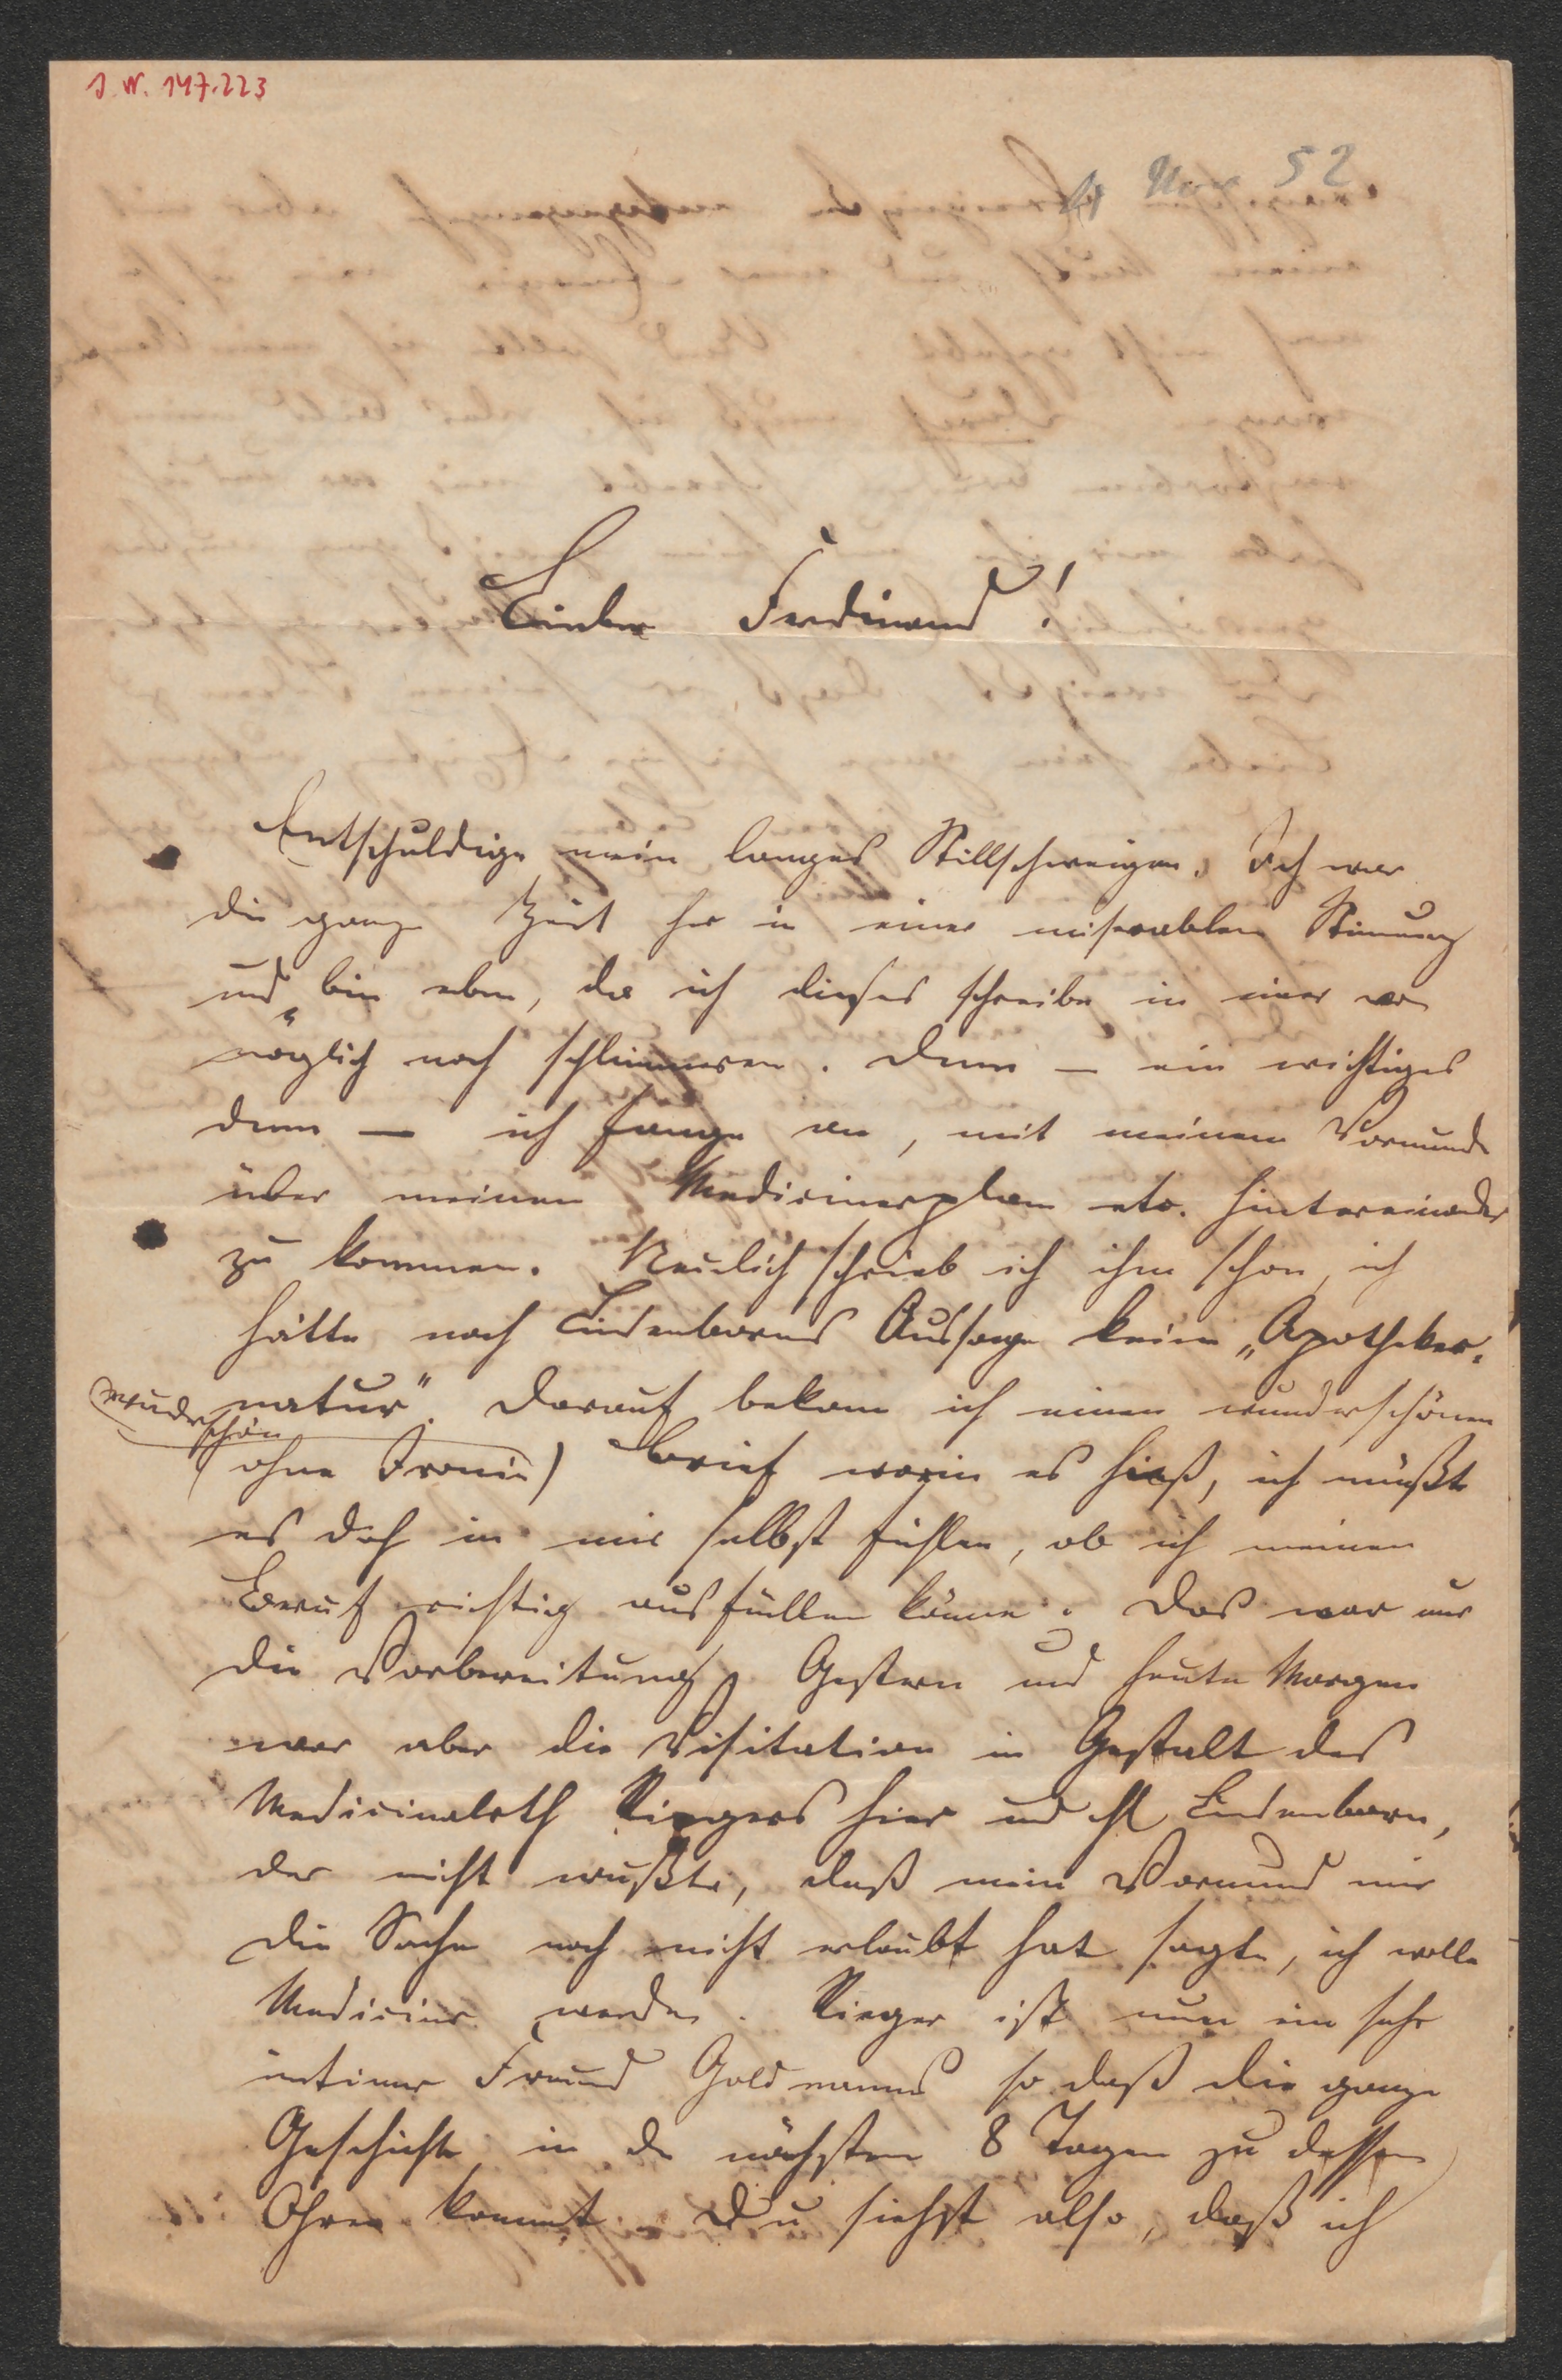 J. N. 147.223
Nov 52
Lieber Ferdinand!
Entschuldige mein langes Stillschweigen. Ich war
die ganze Zeit her in einer miserablen Stimmung
und bin eben, da ich dieses schreibe in einer wo
möglich noch schlimmeren. Denn — ein wichtiges
denn — ich fange an, mit meinem Vormunde
über meinen Medicinerplan etc. hintereinander
zu kommen. Neulich schrieb ich ihm schon, ich
hätte nach Lindenborns Aussage keine „Apotheker-
natur“. Darauf bekam ich einen wunderschönen
(wunderschön
ohne Ironie) Brief worin es hieß, ich müßte
es doch in mir selbst fühlen, ob ich meinen
Beruf richtig ausfüllen könne. Das war nur
die Vorbereitung. Gestern und heute Morgen
war aber die Visitation in Gestalt des
Medicinalrth Riegers hier und H Lindenborn,
der nicht wußte, daß mein Vormund mir
die Sache noch nicht erlaubt hat sagte, ich wolle
Mediciner werden. Rieger ist nun ein sehr
intimer Freund Goldmanns so daß die ganze
Geschichte in de nächsten 8 Tagen zu dessen
Ohren kommt. Du siehst also, daß ich